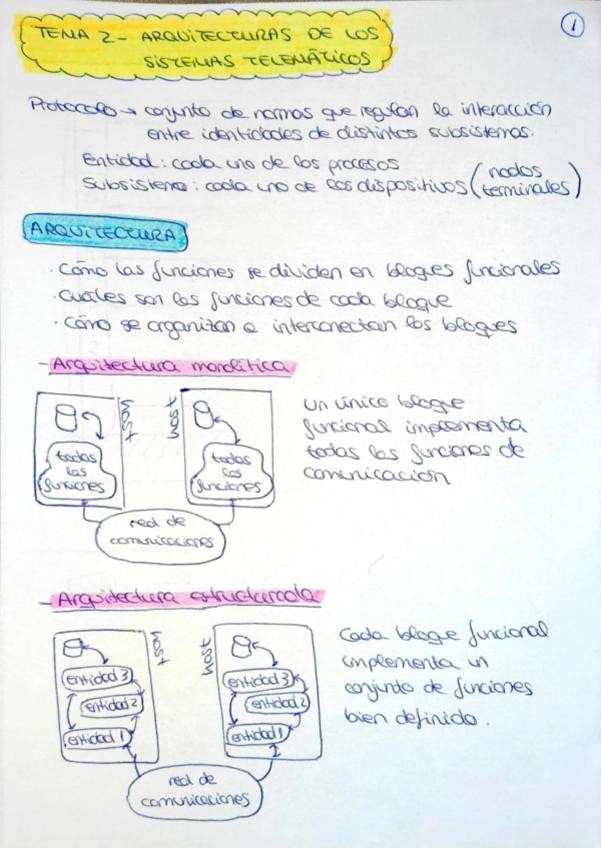 1
TEMA 2 - ARQUITECTURAS DE LOS
SISTEMAS TELEMÁTICOS
Protocolo → conjunto de normas que regulan la interacción
entre identidades de distintos subsistemas.
Entidad: cada uno de los procesos
Subsistema: cada uno de los dispositivos (nodos
terminales)
ARQUITECTURA
· Cómo las funciones se dividen en bloques funcionales
· Cuáles son las funciones de cada bloque
· Cómo se organizan e interconectan los bloques
- Arquitectura monolítica
host
todas
las
funciones
host
todas
las
funciones
red de
comunicaciones
Un único bloque
funcional implementa
todas las funciones de
comunicación
- Arquitectura estructurada
host
entidad 3
entidad 2
entidad 1
host
entidad 3
entidad 2
entidad 1
red de
comunicaciones
Cada bloque funcional
implementa un
conjunto de funciones
bien definido.